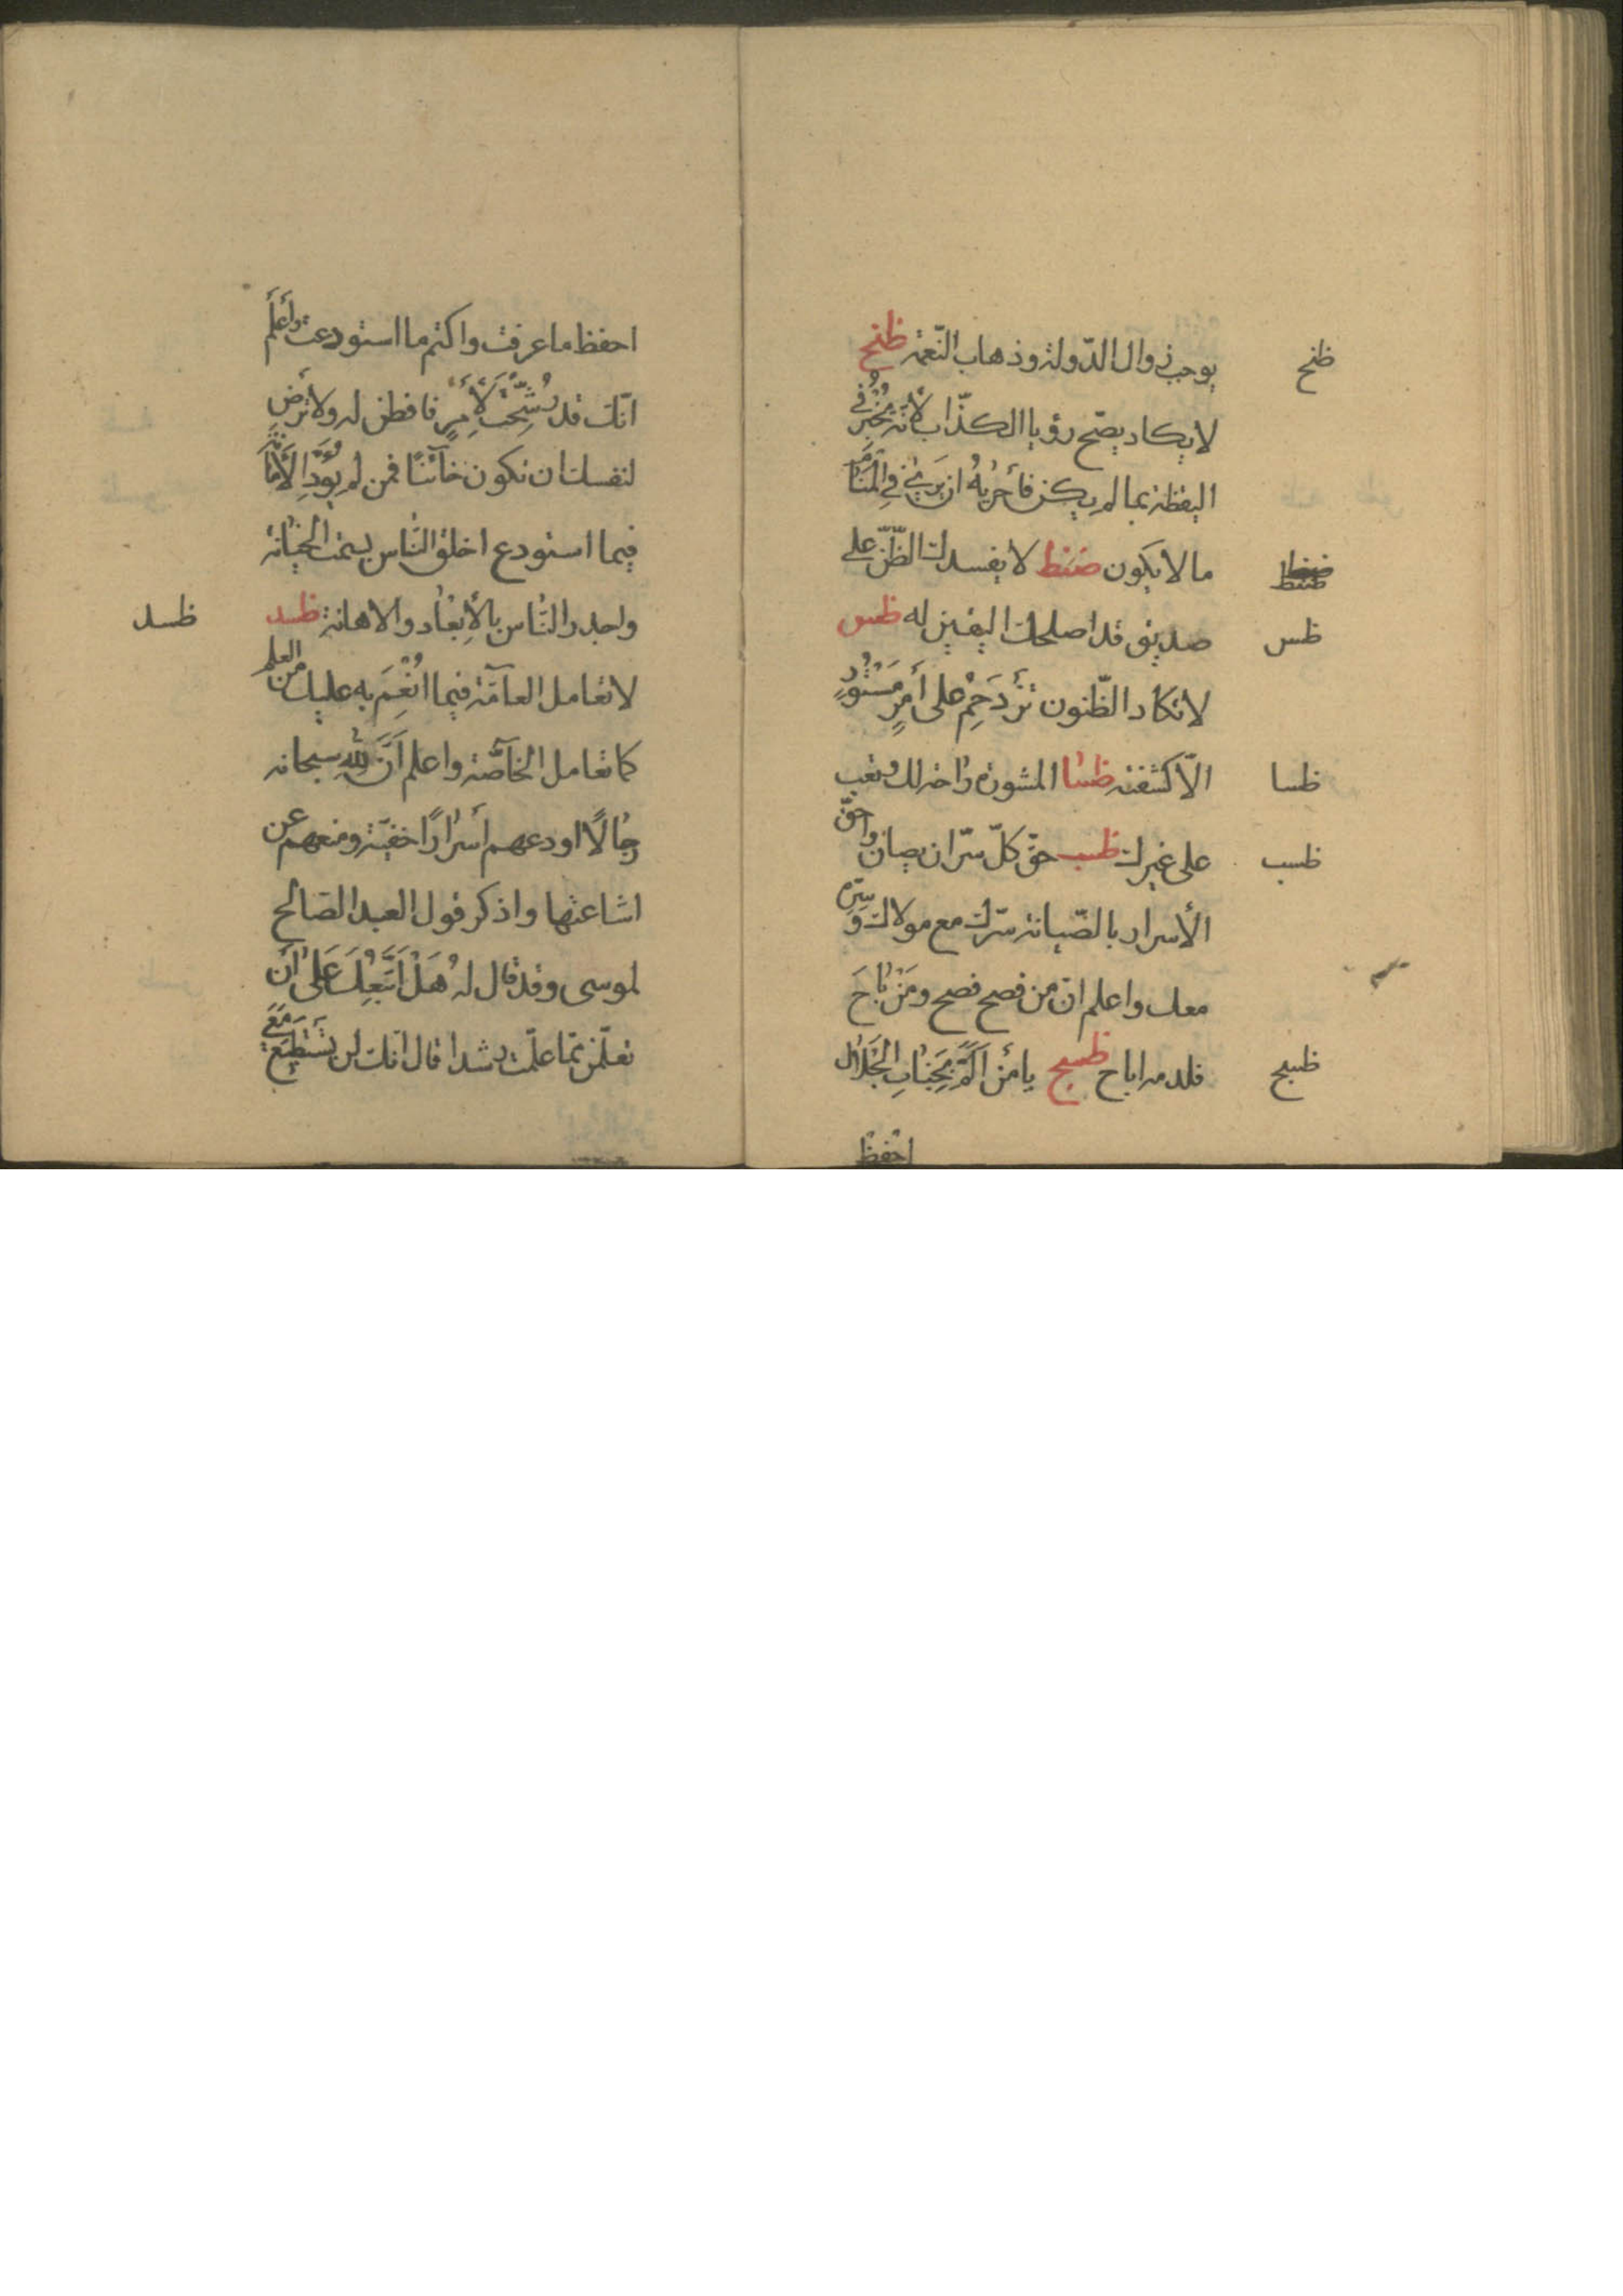 يوجب زوال الدّولة وذهاب النّعمة ظنح
ظنح
لا يكاد يصّح رؤيا الكذّاب لأنّه يُخْبِرُ في
اليقظة بما لم يكن فأحْرِ بِهِ ان يَرىٰ في الْمَنَام
ما لا يكون ضنط لا يفسدك الظّنّ على
ضنط
صديق قد اصلحك اليقين له ظس
ظس
لا تكاد الظّنون تَزْدَحِمُ على أَمْرٍ مَسْتُورٍ
الّا كشفته ظسا المشورة راحة لك وتعب
ظسا
على غيرك ظسب حقّ كلّ سّر ان يصان واحقّ
ظسب
الأسرار بالصّيانة سّرك مع مولاك وسِرّه
معك واعلم انّ من فصح فصح ومَنْ بَاحَ
فلدمه اباح ظسج يا مَنْ اَلَمَّ بِجَنَابِ الْجَلَالِ
ظسج
احْفَظْ
احفظ ما عرفت واكتم ما استودعت وَاعْلَمْ
انّك قد رُشِّحْتَ لأَمْرٍ فافطن له ولا تَرْضَ
لنفسك ان تكون خآئنًا فمن لم يُؤَدِّ الْأَمَانَةَ
فيما استودع اخلق النّاس بسمت الخيانة
واجدر النّاس بالأِبْعَاد والاهانة ظسد
ظسد
لا تعامل العآمّة فيما اُنْعِمَ به عليك من العلم
كما تعامل الخآصّة واعلم اَنَّ لِلّهِ سبحانه
رِجَالًا اودعهم أسْرَارًا خفيّة ومنعهم عن
اشاعتها واذكر قول العبد الصّالح
لموسى وقد قال لهُ هَلْ اَتَّبِعُكَ عَلىٰ اَنْ
تعلّمن ممّا علّمت رشدا قال انّك لن تَسْتَطِيعَ مَعِيَ